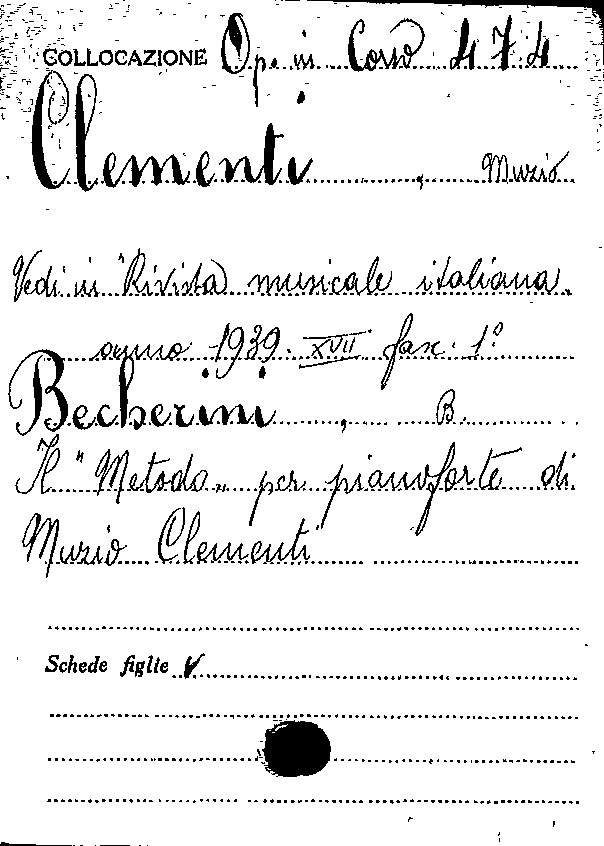 COLLOCAZIONE Op. in Corso 474
Clementi, Muzio
Vedi in "Rivista musicale italiana.
anno 1939. XVII fasc. 1°
Becherini, B.
Il "Metodo„ per pianoforte di
Muzio Clementi
Schede figlie V